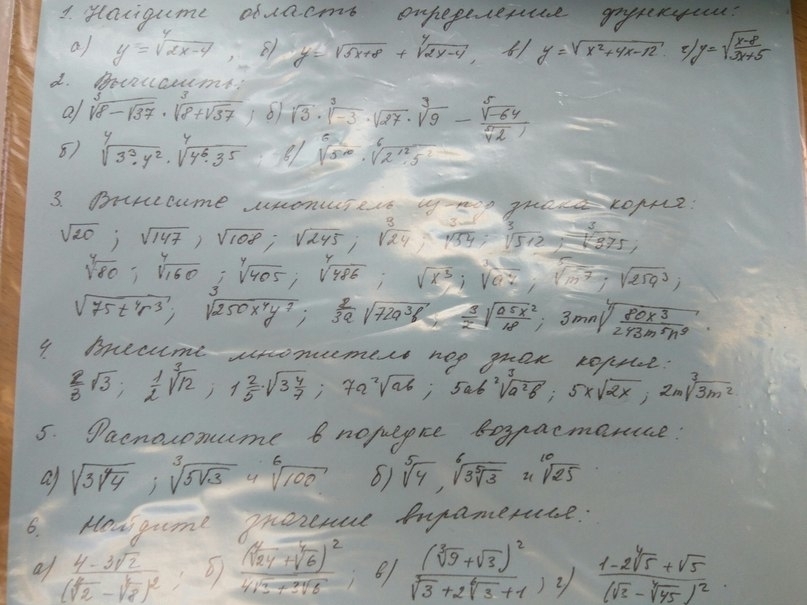 1. Найдите область определения функции:
а) y = ⁴√(2x-4) ; б) y = √(5x+8) + ⁴√(2x-4), в) y = √(x²+4x-12). г) y = √((x-8)/(3x+5))
2. Вычислить:
а) ³√(8-√37) · ³√(8+√37) ; б) √3 · ³√(-3) · √27 · ³√9 - ⁵√(-64)/⁵√2 ;
б) ⁴√(3³·4²) · ⁴√(4⁶·3⁵) ; в) ⁶√(5¹⁰) · ⁶√(2¹²·5²)
3. Вынесите множитель из-под знака корня:
√20 ; √147 ; √108 ; √245 ; ³√24 ; ³√54 ; ³√512 ; ³√375 ;
⁴√80 ; ⁴√160 ; ⁴√405 ; ⁴√486 ; √x³ ; ³√a⁴ ; ⁵√m⁷ ; √(25a³) ;
√(75t⁴r³) ; ³√(250x⁴y⁷) ; 2/(3a) √(72a³b) ; 3/2 √(a5x²/18) ; 3mn ⁴√(80x³/(243m⁵n⁹)) .
4. Внесите множитель под знак корня:
2/3 √3 ; 1/2 ³√12 ; 1 2/5 · √(3 4/7) ; 7a² √(ab) ; 5ab² ³√(a²b) ; 5x √(2x) ; 2m ³√(3m²)
5. Расположите в порядке возрастания:
а) √(3⁴√4) ; ³√(5√3) и ⁶√100 б) ⁵√4 , ⁶√(3⁵√3) и ¹⁰√25
6. Найдите значение выражения:
а) (4-3√2)/(⁴√2-⁴√8)² ; б) (⁴√24+⁴√6)²/(4√3+3√6) ; в) (³√9+√3)²/(³√3+2⁶√3+1) ; г) (1-2⁴√5+√5)/(√3-⁴√45)² .